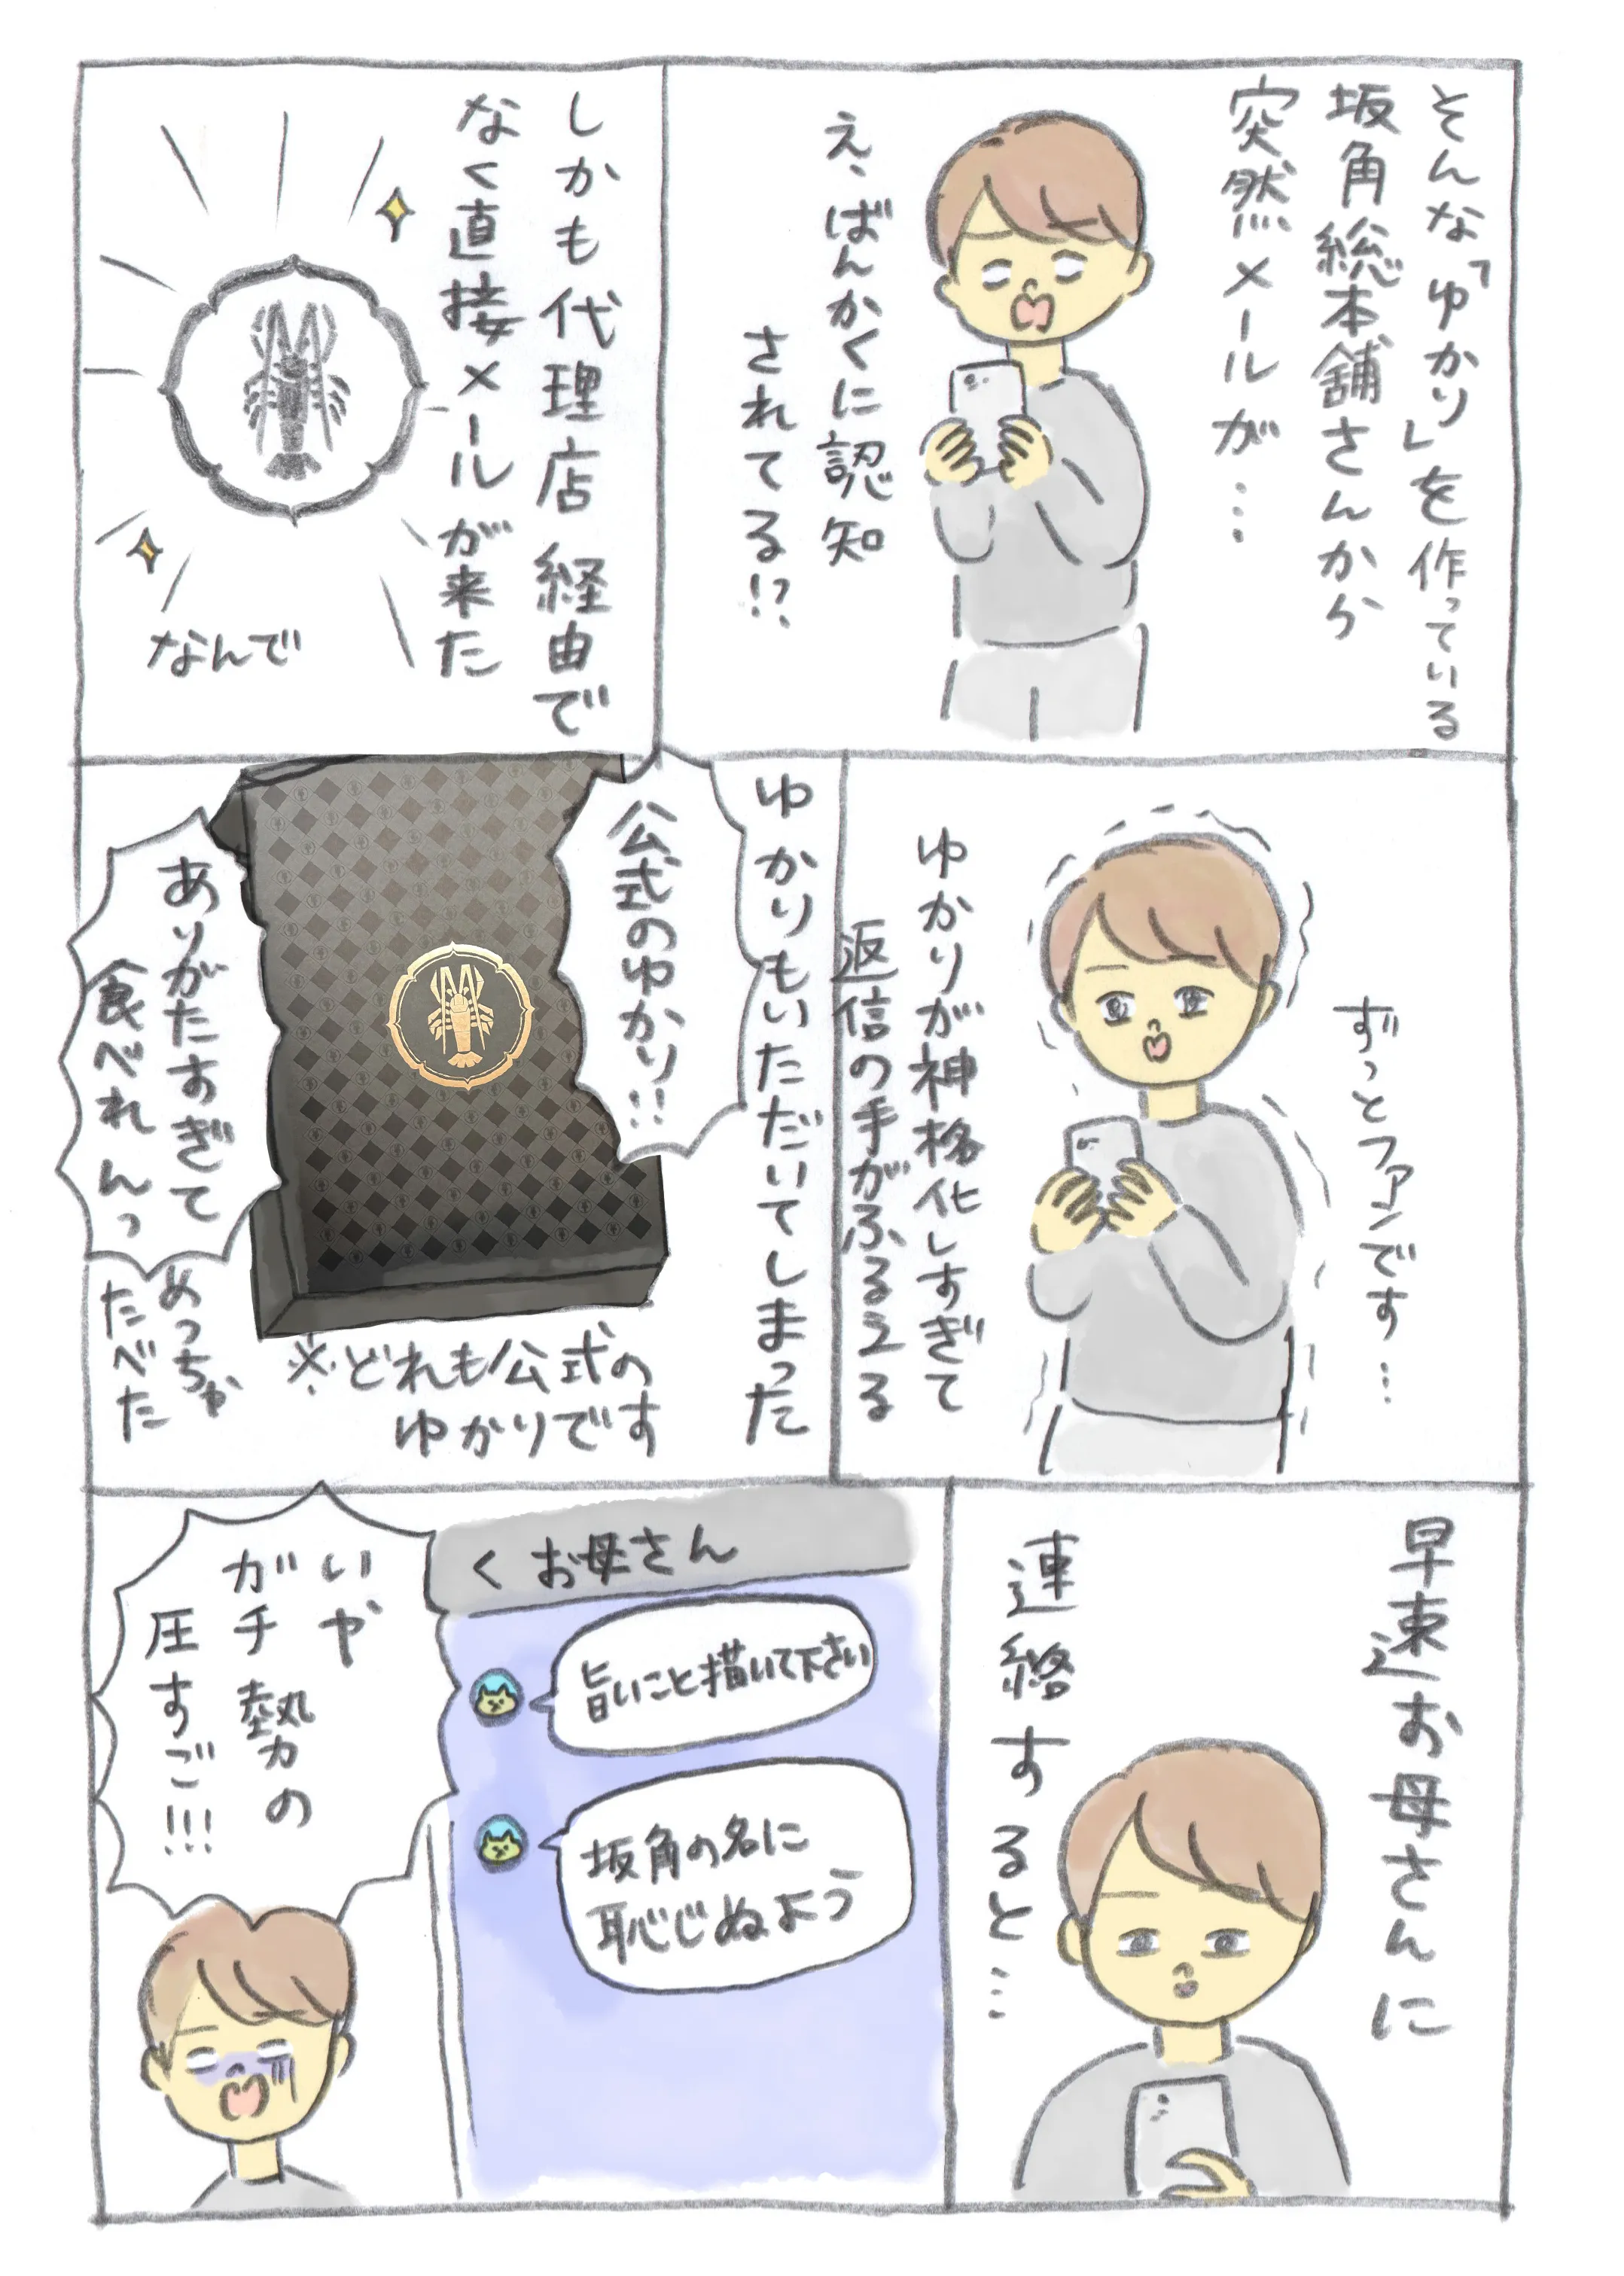 そんな「ゆかり」を作っている
坂角総本舗さんから
突然メールが…
え、ばんかくに認知
されてる!?
しかも代理店経由で
なく直接メールが来た
なんで
ずっとファンです…
ゆかりが神格化しすぎて
返信の手がふるえる
ゆかりもいただいてしまった
公式のゆかり!!
ありがたすぎて
食べれんっ
めっちゃ
たべた
※どれも公式の
ゆかりです
早速お母さんに
連絡すると…
く お母さん
旨いこと描いて下さい
坂角の名に
恥じぬよう
いや
ガチ勢の
圧すご!!!